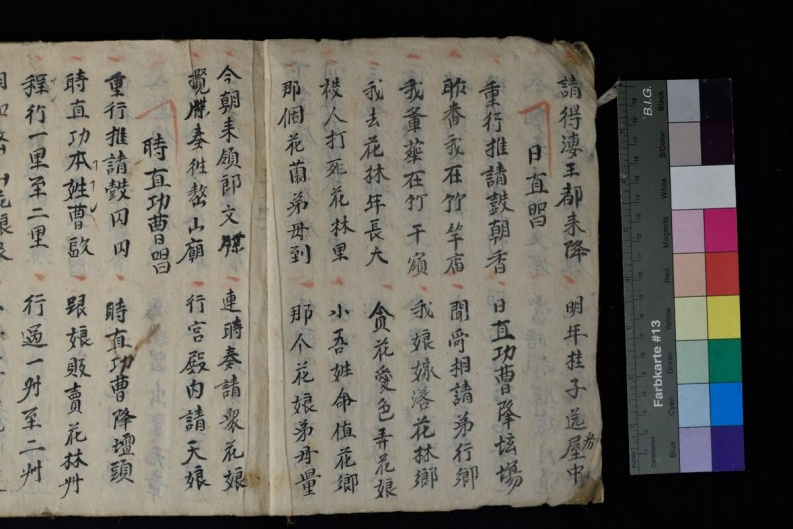 請得淒王都来降 明年掛子送屋中
房
日直唱
重行推請鼓朝香 日直功曹降坛場
昨番我在竹竿庙 聞奇相請弟行鄉
我爹葬在竹千嶺 我娘嫁落花林鄉
我去花林年長大 貪花愛色弄花娘
被人打死花林里 小吾姓命值花鄉
那個花蘭弟母到 那个花娘弟母量
今朝来領郎文牒 連時奏請衆花娘
攪牒奏徃鰲山廟 行宫殿内請天娘
時直功曹唱
重行推請鼓冈冈 時直功曹降壇頭
時直功本姓曹 跟娘販賣花林州
程行一里至二里 行過一州至二州
山花娘
Black
3/Color
White
Magenta
Red
Yellow
Green
Cyan
Blue
B.I.G.
Farbkarte #13